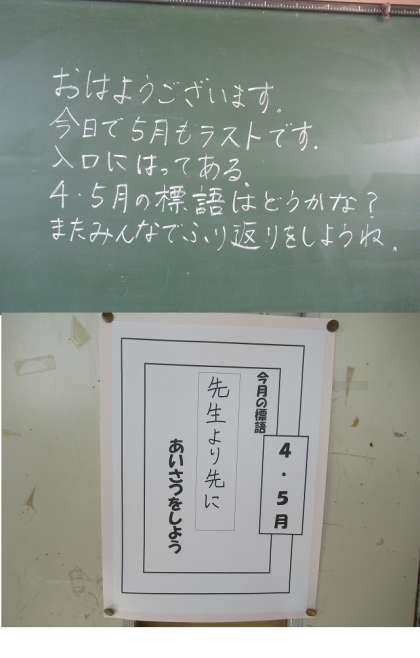 おはようございます。
今日で5月もラストです。
入口にはってある、
4・5月の標語はどうかな?
またみんなでふり返りをしようね。
4・5月
今月の標語
先生より先に
あいさつをしよう